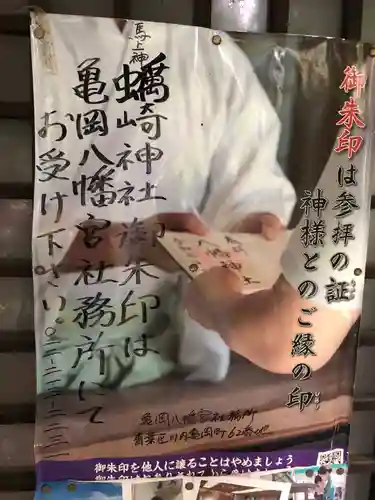 御朱印は参拝の証
神様とのご縁の印
馬上神
蠣崎神社御朱印は
亀岡八幡宮社務所にて
お受け下さい。
亀岡八幡宮社務所
青葉区川内亀岡町62番地
御朱印を他人に譲ることはやめましょう